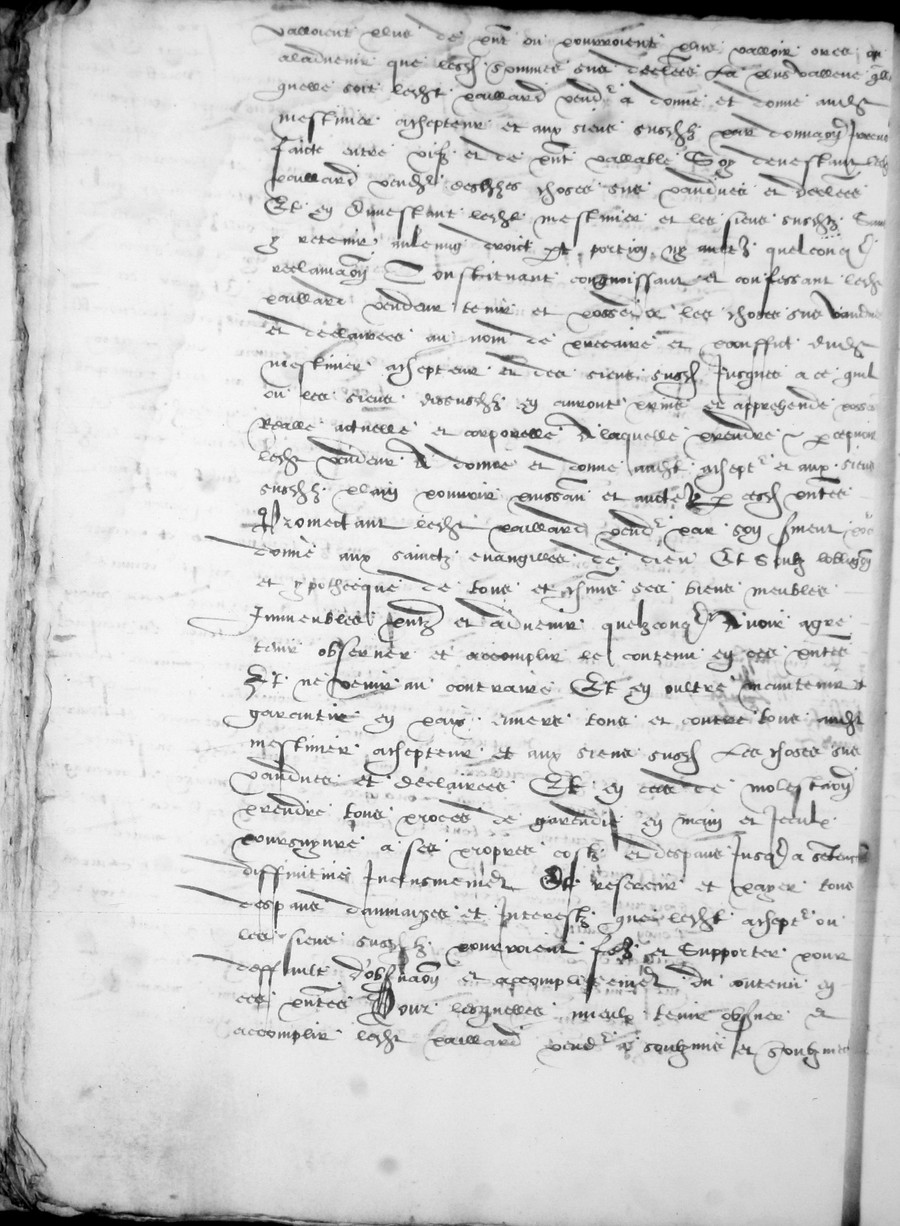 valloient plus de pnt ou pourroient plus valloir ores ou
aladvenir que lesd sommes sus declerees La plus valleue
quelle soit ledit paillard vendr a donne et donne aud
mestivier achepteur et aux siens susd par donnaon
faicte entre vifz et de pnt vallable Soy devestant led
paillard vendr desdites choses sus vandues et declerees
Et en Investant ledit mestivier et les siens susd Sans
y retenir aulcung droict part portion ny aultre quelconq
reclamaon Constituant congnoissant et confessant led
paillard vendeur tenir et posseder les choses sus vandues
et declairees au nom de precaire et prouffict dud
mestivier achepteur et des siens susd Jusques a ce quil
ou les siens dessusd en auront prins et apprehende poss
Realle actuelle et corporelle A laquelle prendre et percepvoir
ledit vendeur A donne et donne audit achept et aux siens
susd plain pouvoir puissan et aucte p cesd pntes
Promectant ledit paillard vendr par son serment
donne aux sainctz evangilles de dieu Et Soubz lobligaon
et ypothecque de tous et chuns ses biens meubles
Immeubles pntz et advenir quelzconq Avoir agre
tenir observer et accomplir le contenu en ces pntes
Et ne venir au contraire Et en oultre maintenir et
garentir en paix envers tous et contre tous audit
mestivier achepteur et aux siens susd Les choses sus
vandues et declairees Et en cas de molestaon
prendre tous proces de garendie en main et Iceulx
poursuyvre a ses propres costz et despans Jusq a sentence
diffinitive Inclusivement Et reserver et payer tous
despans dommaiges et Interestz que ledit achept ou
les siens susd pourroient fere et Supporter pour
deffault dobsvaon et accomplissement du contenu en
ces pntes Pour lesquelles mieulx tenir obsver et
accomplir ledit paillard vendr a soubzmis et soubzmect